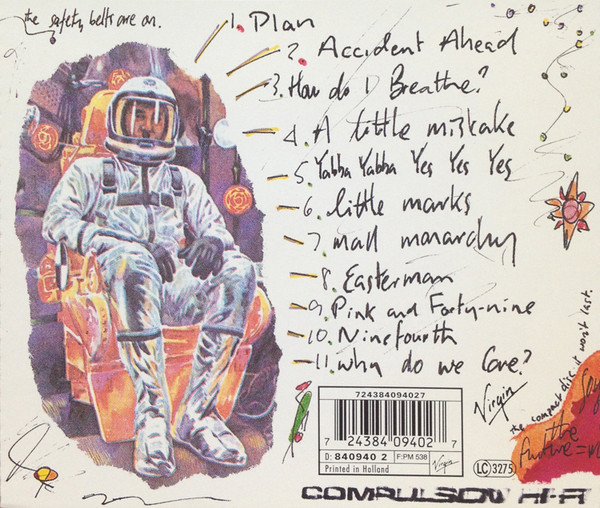 the safety belts are on.
1. Plan
2. Accident Ahead
3. How do I Breathe?
4. A little mistake
5. Yabba Yabba Yes Yes Yes
6. little marks
7. mall monarchy
8. Easterman
9. Pink and Forty-nine
10. Ninefourth
11. Why do we Care?
724384094027
7 24384 09402 7
D: 840940 2
F: PM 538
Virgin
Printed in Holland
Virgin
the compact disc, it won't last.
LC 3275
the
future =
COMPULSION HI-FI